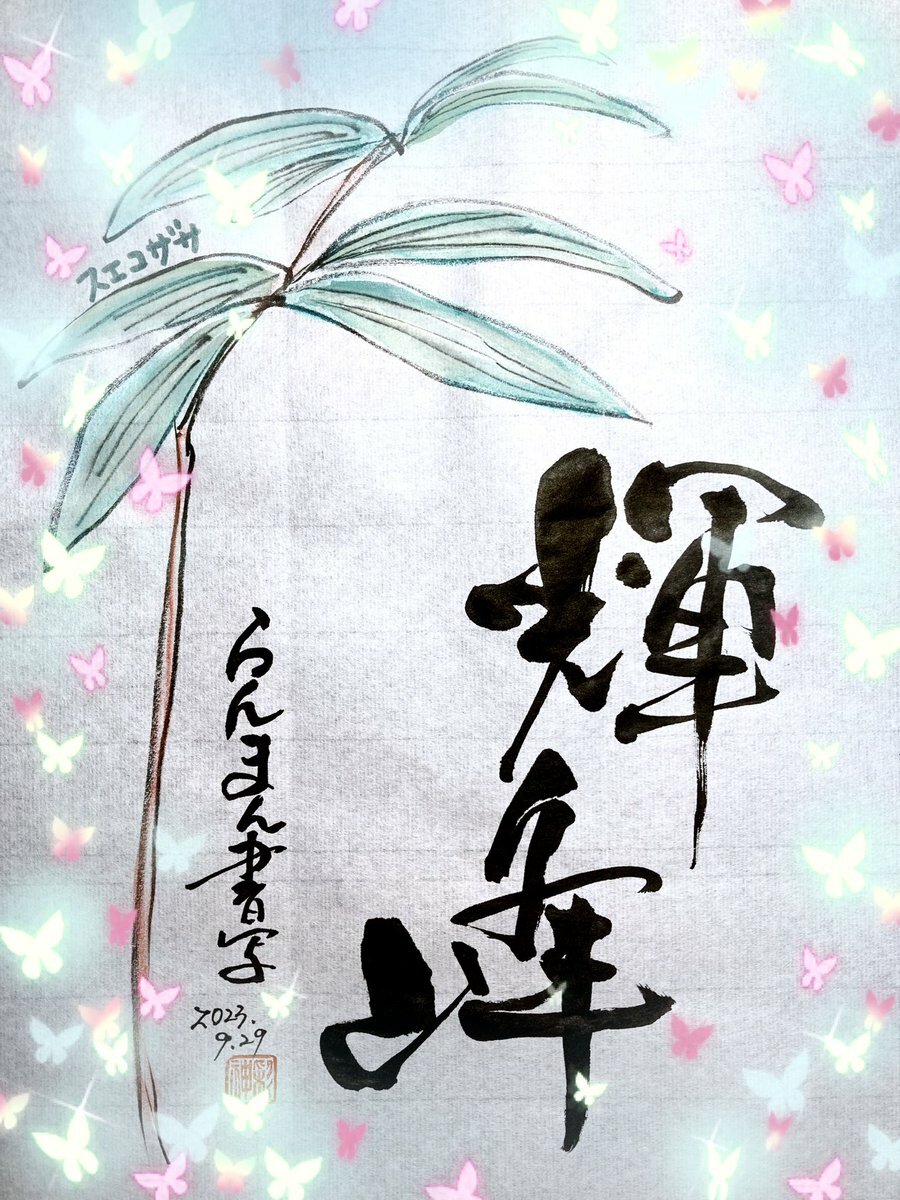 スエコザサ
輝峰
らんまん書写
2023.
9.29